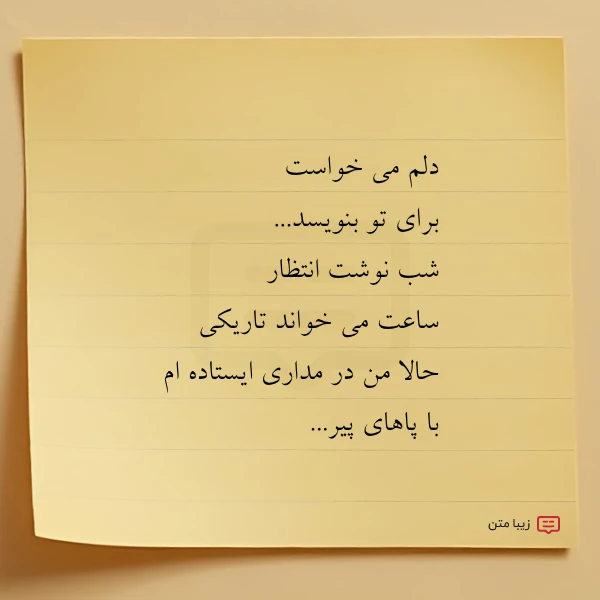 دلم می خواست
برای تو بنویسد...
شب نوشت انتظار
ساعت می خواند تاریکی
حالا من در مداری ایستاده ام
با پاهای پیر...
زیبا متن